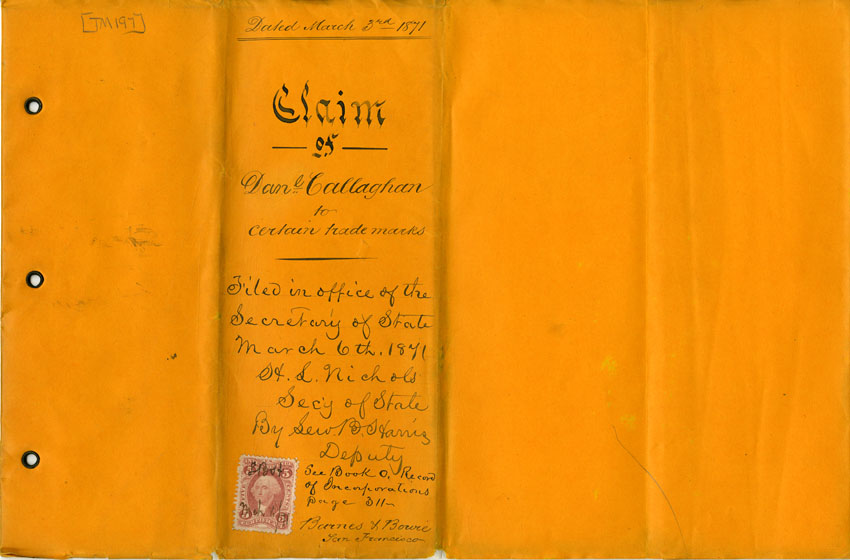 [TM197]
Dated March 3rd 1871
Claim
of
Danl Callaghan
to
certain trade marks
Filed in office of the
Secretary of State
March 6th, 1871
H. L. Nichols
Secy of State
By Lew B. Harris
Deputy
See Book O, Record
of Incorporations
page 311
Barnes & Bowie
San Francisco
5
5